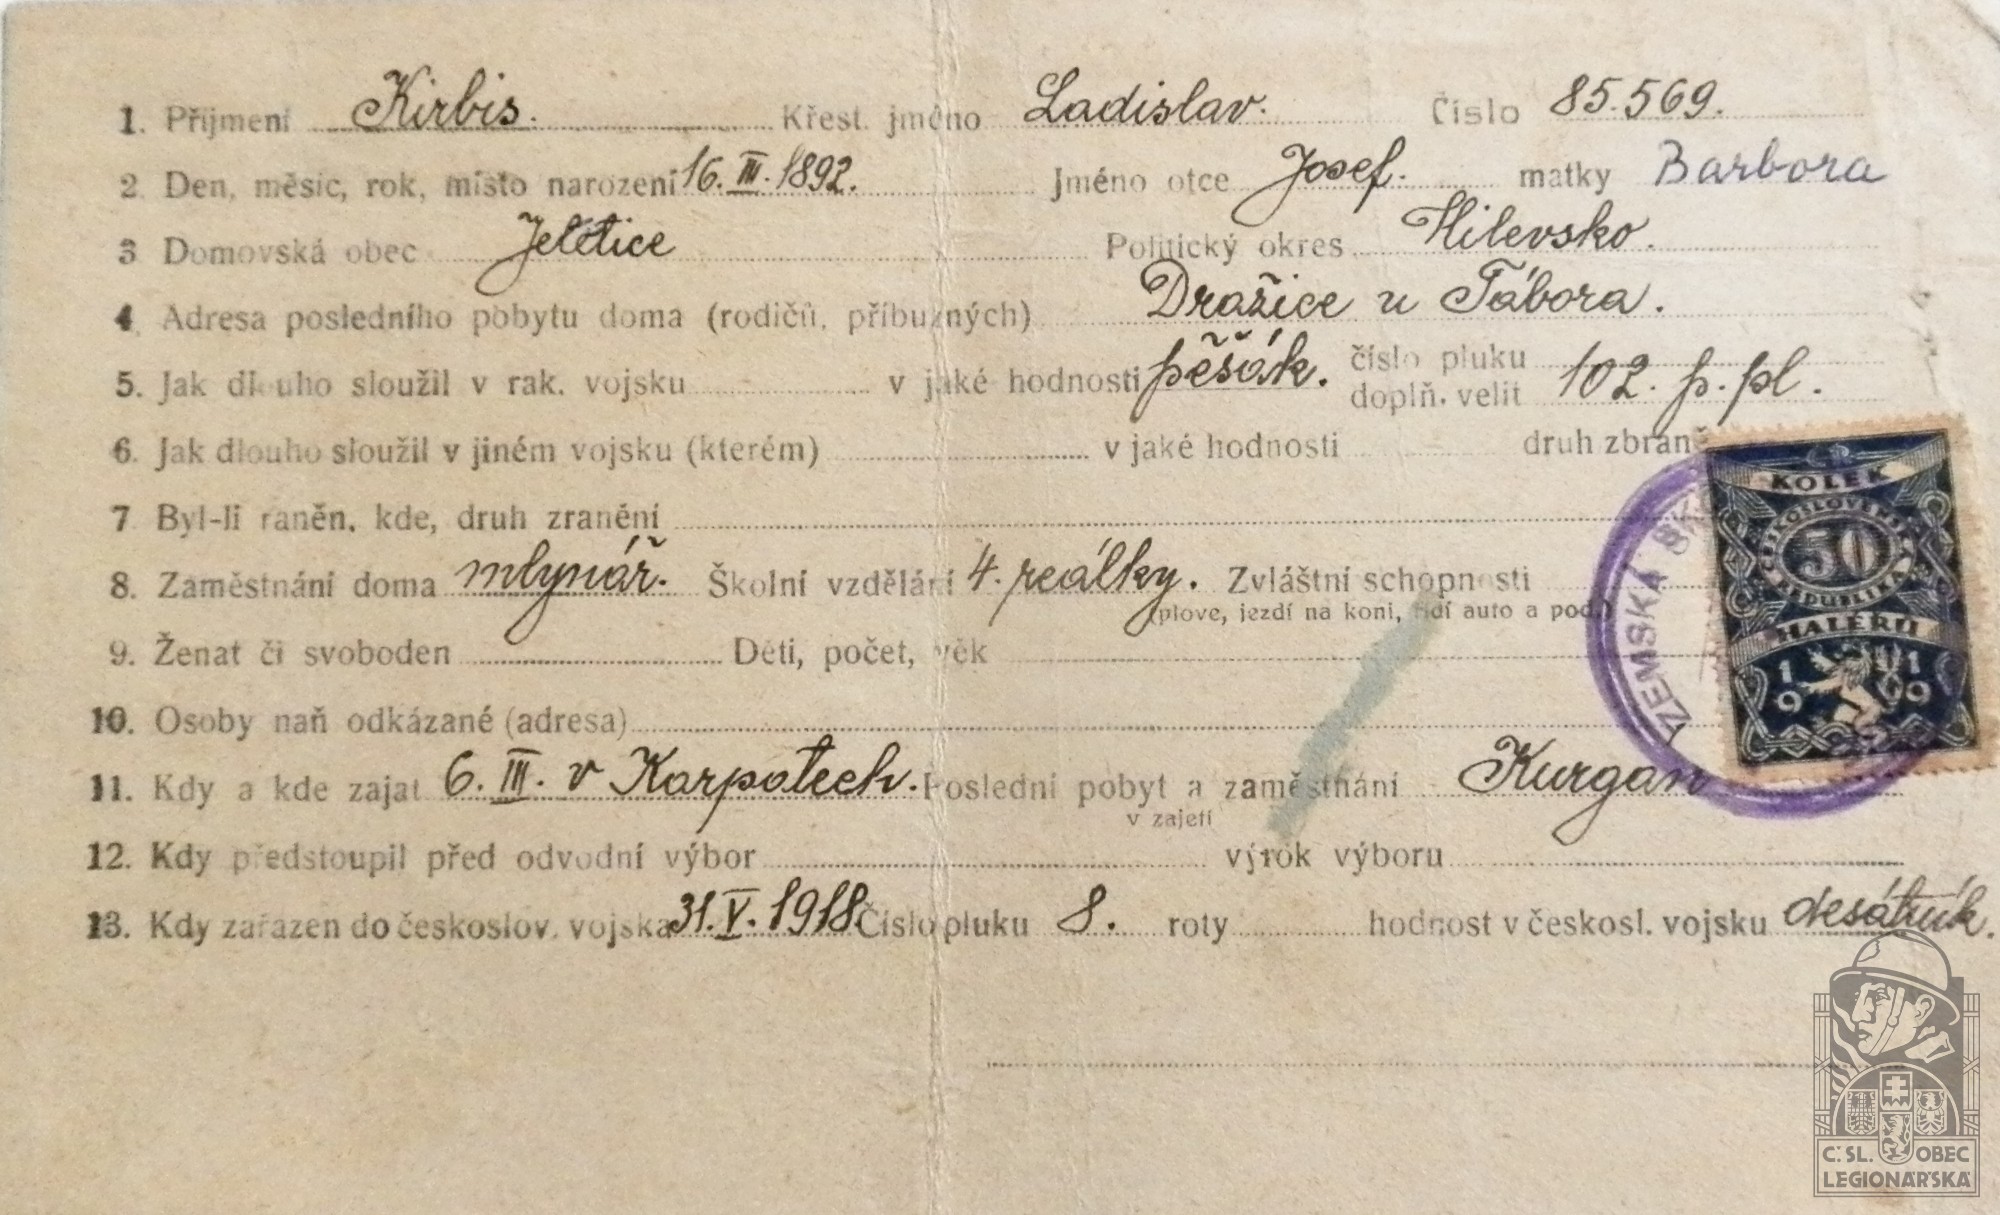 1. Příjmení Kirbis. Křest. jméno Ladislav. Číslo 85.569.
2 Den, měsíc, rok, místo narození 16. III. 1892. Jméno otce Josef. matky Barbora
3 Domovská obec Jeletice Politický okres Milevsko.
4 Adresa posledního pobytu doma (rodičů, příbuzných) Dražice u Tábora.
5. Jak dlouho sloužil v rak. vojsku v jaké hodnosti pěšák. číslo pluku doplň. velit 102. p. pl.
6. Jak dlouho sloužil v jiném vojsku (kterém) v jaké hodnosti druh zbraně
7 Byl-li raněn, kde, druh zranění
8. Zaměstnání doma mlynář. Školní vzdělání 4. reálky. Zvláštní schopnosti
(plove, jezdí na koni, řídí auto a pod.)
9. Ženat či svoboden Děti, počet, věk
10. Osoby naň odkázané (adresa)
11. Kdy a kde zajat 6. III. v Karpatech. Poslední pobyt a zaměstnání Kurgan
v zajetí
12. Kdy předstoupil před odvodní výbor výrok výboru
13. Kdy zařazen do českoslov. vojska 31. V. 1918 Číslo pluku 8. roty hodnost v českosl. vojsku desátník.
KOLEK
ČESKOSLOVENSKÁ
50
REPUBLIKA
HALÉŘŮ
1919
ZEMSKÁ
Č. SL. OBEC
LEGIONÁŘSKÁ